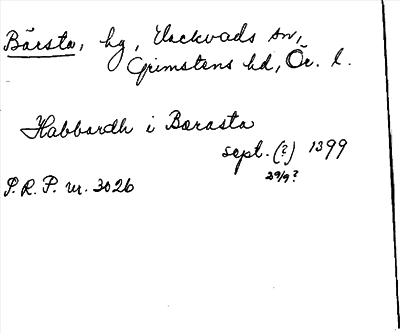 Bärsta, hg, Hackvads sn,
Grimstens hd, Ör. l.
Habbardh i Barasta
sept. (?) 1399
29/9?
P.R.P. nr. 3026